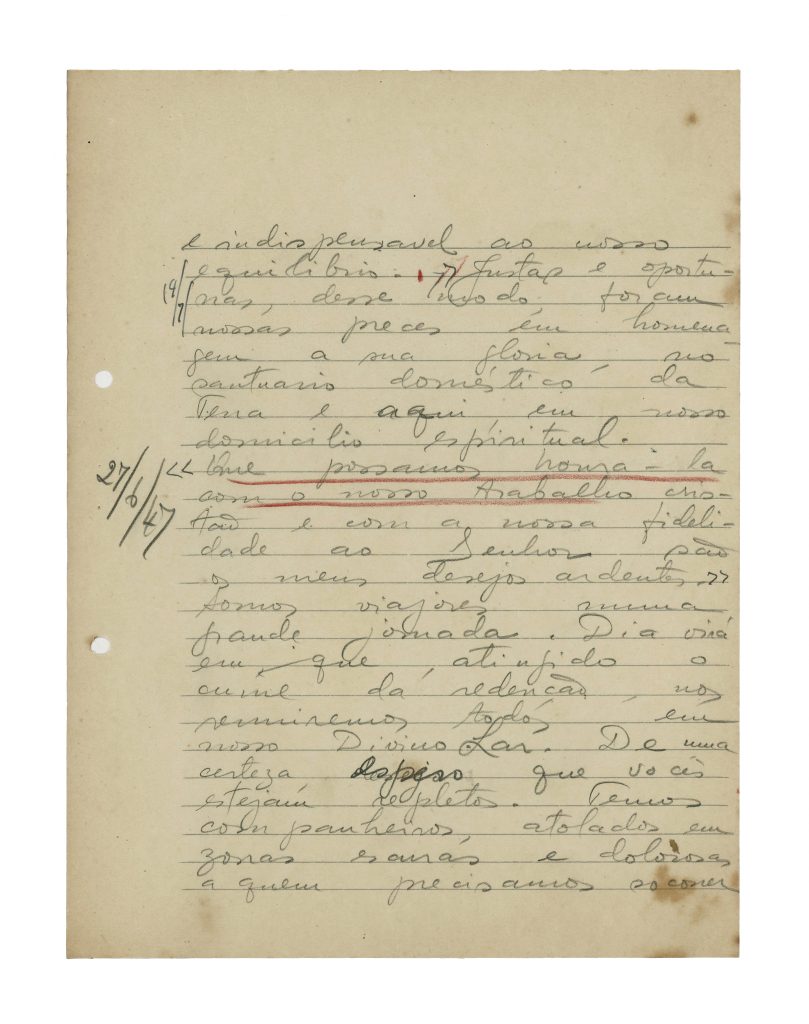 e indispensavel ao nosso
equilibrio. " Justas e oportu-
19/7/
nas, desse modo, foram
nossas preces em homena
gem a sua gloria, no
santuario doméstico da
Terra e aqui, em nosso
domicilio espiritual.
27/6/47
<< Que possamos honra-la
com o nosso trabalho cris-
tão e com a nossa fideli-
dade ao Senhor são
os meus desejos ardentes. >>
Somos viajores numa
grande jornada. Dia virá
em que, atingido o
cume da redenção, nos
reuniremos todos em
nosso Divino Lar. De uma
certeza espero que vocês
estejam repletos. Temos
companheiros, atolados em
zonas e dolorosas
a quem precisamos socorrer